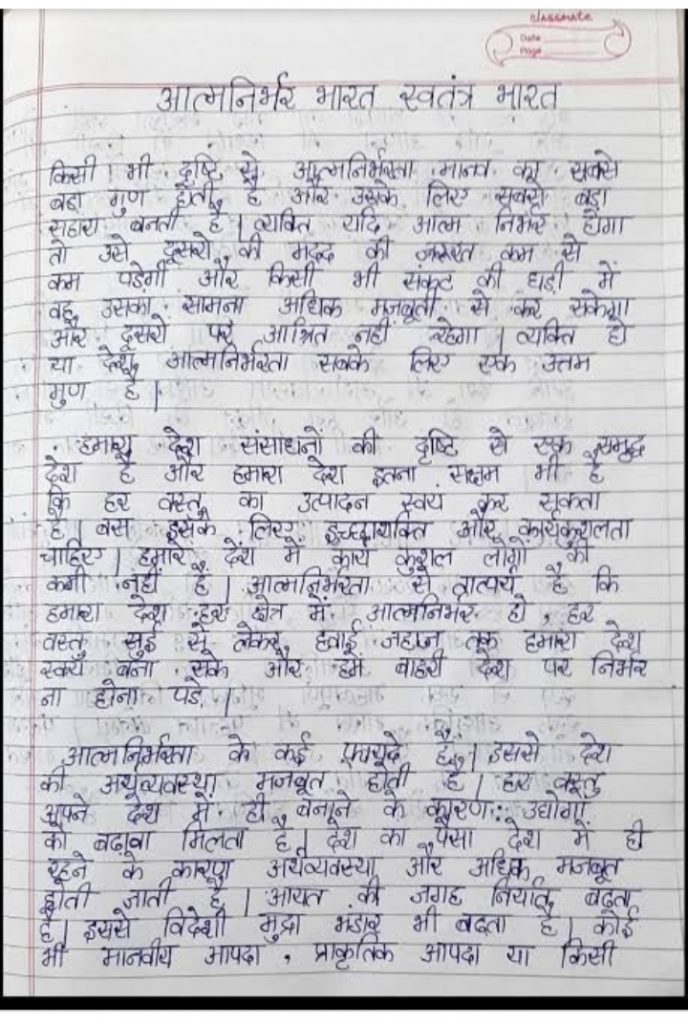 classmate
Date
Page
आत्मनिर्भर भारत स्वतंत्र भारत
किसी भी दृष्टि से आत्मनिर्भरता मानव का सबसे
बडा गुण होती है और उसके लिए सबसे बडा
सहारा बनती है | व्यक्ति यदि आत्म निर्भर होगा
तो उसे दूसरो की मदद की जरूरत कम से
कम पडेगी और किसी भी संकट की घडी में
वह उसका सामना अधिक मजबूती से कर सकेगा
और दूसरो पर आश्रित नहीं रहेगा | व्यक्ति हो
या देश आत्मनिर्भरता सबके लिए एक उत्तम
गुण है |
हमारा देश संसाधनों की दृष्टि से एक समृद्ध
देश है और हमारा देश इतना सक्षम भी है
कि हर वस्तु का उत्पादन स्वयं कर सकता
है | बस इसके लिए इच्छाशक्ति और कार्यकुशलता
चाहिए | हमारे देश में कार्य कुशल लोगो की
कमी नहीं है | आत्मनिर्भरता से तात्पर्य है कि
हमारा देश हर क्षेत्र में आत्मनिर्भर हो , हर
वस्तु सुई से लेकर हवाई जहाज तक हमारा देश
स्वयं बना सके और हमे बाहरी देश पर निर्भर
ना होना पडे |
आत्मनिर्भरता के कई फायदे है | इससे देश
की अर्थव्यवस्था मजबूत होती है | हर वस्तु
अपने देश में ही बनाने के कारण उद्योगों
को बढावा मिलता है | देश का पैसा देश में ही
रहने के कारण अर्थव्यवस्था और अधिक मजबूत
होती जाती है | आयत की जगह निर्यात बढता
है | इससे विदेशी मुद्रा भंडार भी बढता है | कोई
भी मानवीय आपदा , प्राकृतिक आपदा या किसी